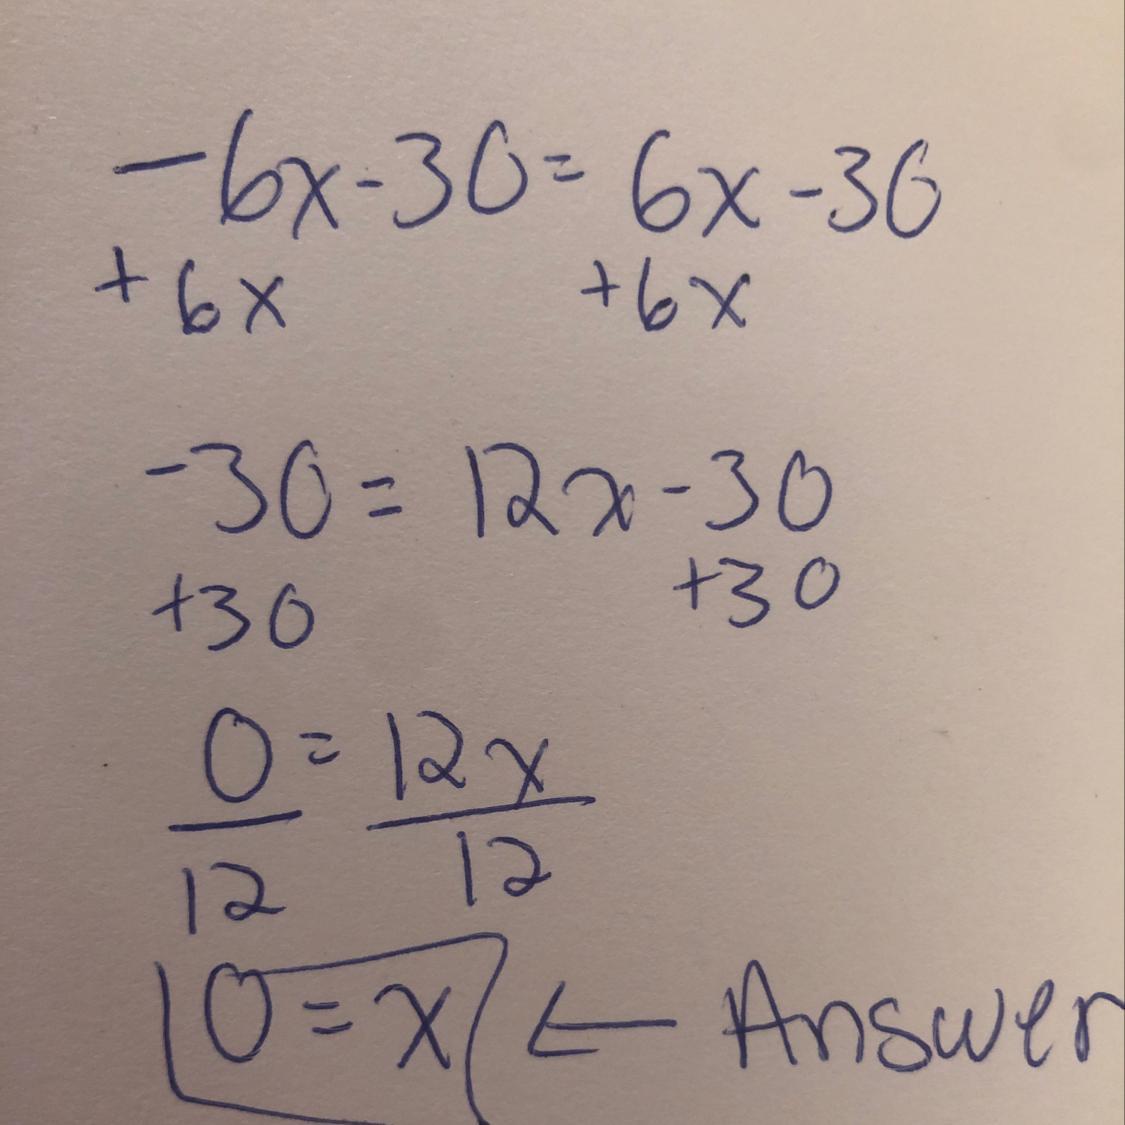 -6x-30= 6x-30
+6x +6x
-30= 12x-30
+30 +30
0= 12x
12 12
0=x ← Answer